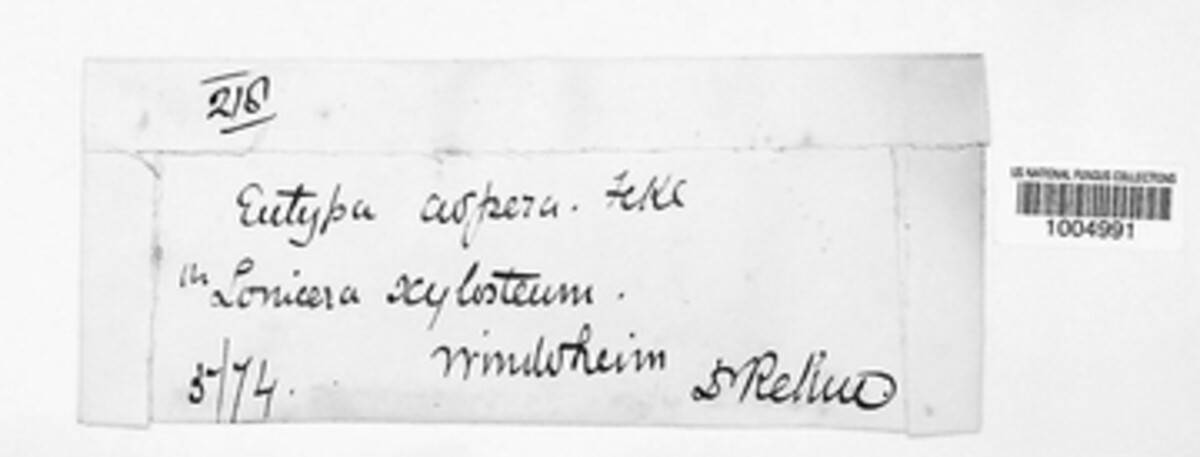 216
Eutypa aspera. Fckl
in Lonicera xylosteum.
Windsheim
5/74. Dr Rehm
US NATIONAL FUNGUS COLLECTIONS
1004991